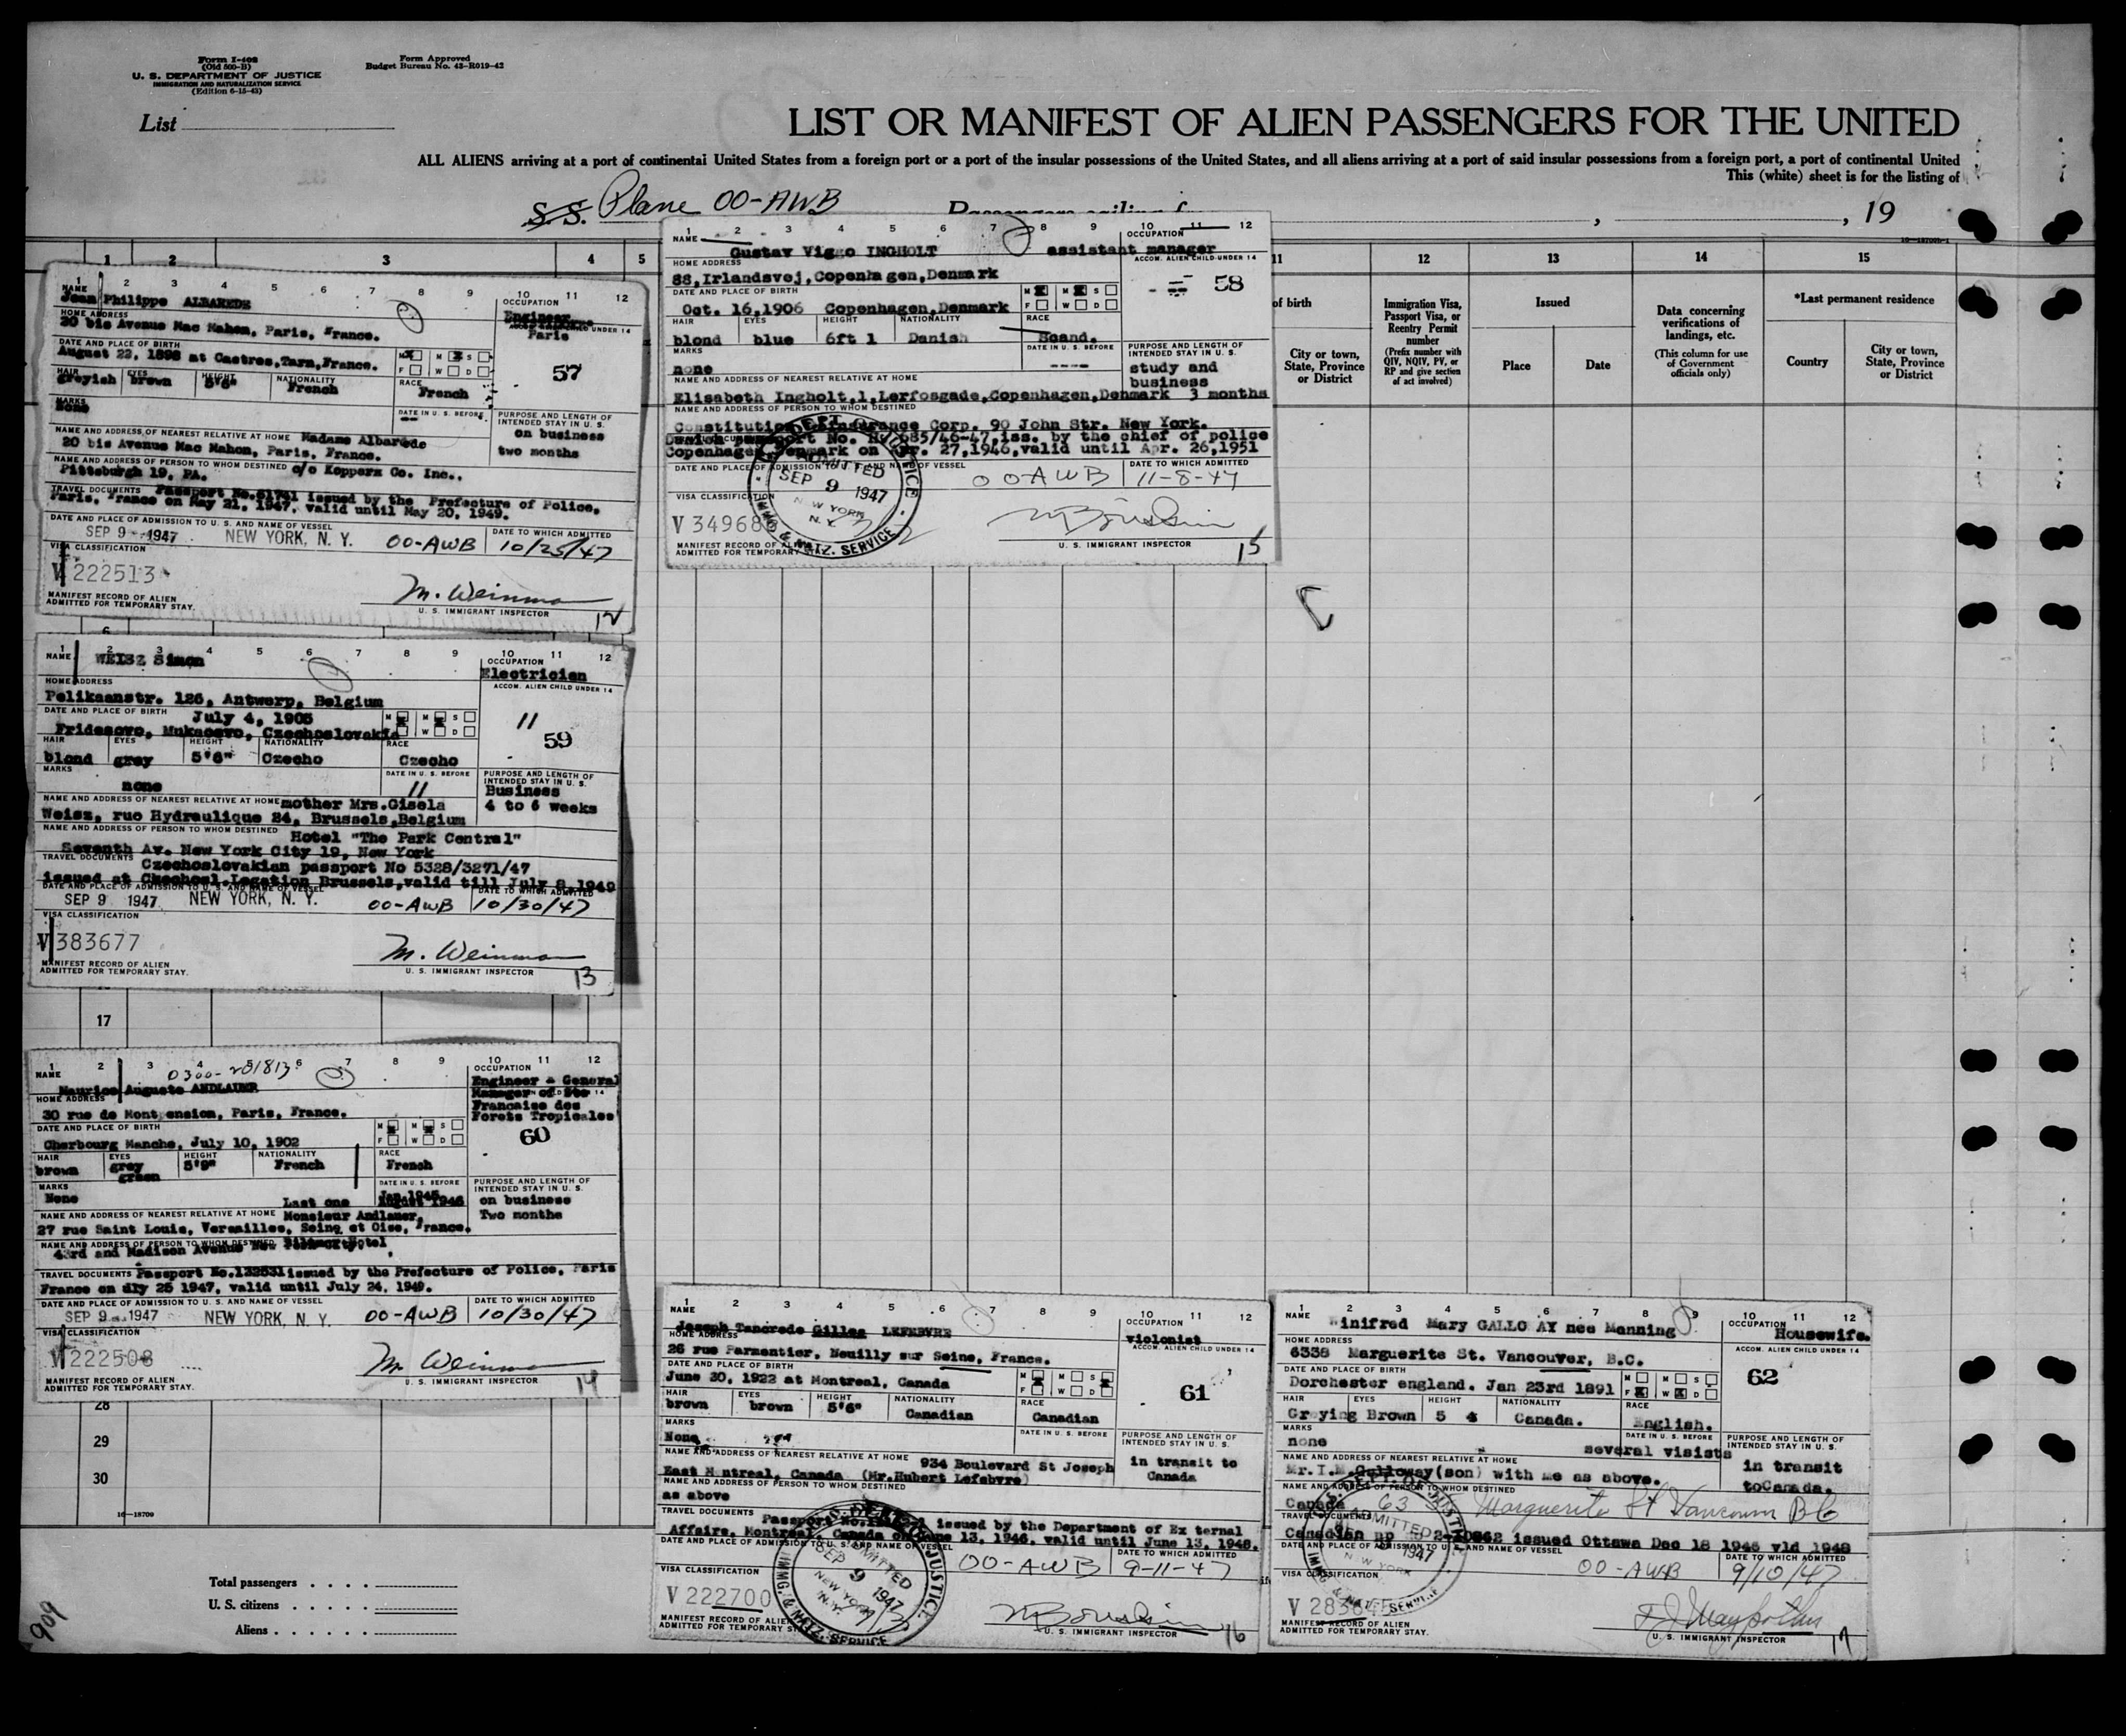 Form I-408
(Old 500-B)
U. S. DEPARTMENT OF JUSTICE
IMMIGRATION AND NATURALIZATION SERVICE
(Edition 6-15-43)
Form Approved
Budget Bureau No. 43-R019-42
List
LIST OR MANIFEST OF ALIEN PASSENGERS FOR THE UNITED
ALL ALIENS arriving at a port of continental United States from a foreign port or a port of the insular possessions of the United States, and all aliens arriving at a port of said insular possessions from a foreign port, a port of continental United
This (white) sheet is for the listing of
S.S. Plane OO-AWB
Passengers sailing f
, , 19
1 2 3 4 5
11 12 13 14 15
of birth
City or town, State, Province or District
Immigration Visa, Passport Visa, or Reentry Permit number
(Prefix number with QIV, NQIV, PV, or RP and give section of act involved)
Issued
Place
Date
Data concerning verifications of landings, etc.
(This column for use of Government officials only)
*Last permanent residence
Country
City or town, State, Province or District
1 2 3 4 5 6 7 8 9 10 11 12
NAME
Jean Philippe ALBAREDE
OCCUPATION
Engineer
Paris
HOME ADDRESS
20 bis Avenue Mac Mahon, Paris, France.
57
DATE AND PLACE OF BIRTH
August 22, 1898 at Castres, Tarn, France.
M F M W S D
HAIR EYES HEIGHT NATIONALITY RACE
greyish brown 5'6" French French
MARKS
None
DATE IN U. S. BEFORE
--
PURPOSE AND LENGTH OF INTENDED STAY IN U. S.
on business
two months
NAME AND ADDRESS OF NEAREST RELATIVE AT HOME Madame Albarede
20 bis Avenue Mac Mahon, Paris, France.
NAME AND ADDRESS OF PERSON TO WHOM DESTINED c/o Koppers Co. Inc.,
Pittsburgh 19, PA.
TRAVEL DOCUMENTS Passport No.61741 issued by the Prefecture of Police,
Paris, France on May 21, 1947, valid until May 20, 1949.
DATE AND PLACE OF ADMISSION TO U. S. AND NAME OF VESSEL
SEP 9 1947 NEW YORK, N. Y. OO-AWB
DATE TO WHICH ADMITTED
10/25/47
VISA CLASSIFICATION
V 222513
MANIFEST RECORD OF ALIEN
ADMITTED FOR TEMPORARY STAY.
M. Weinman
U. S. IMMIGRANT INSPECTOR
12
1 2 3 4 5 6 7 8 9 10 11 12
NAME
Gustav Viggo INGHOLT
OCCUPATION
assistant manager
HOME ADDRESS
88, Irlandsvej, Copenhagen, Denmark
ACCOM. ALIEN CHILD UNDER 14
58
DATE AND PLACE OF BIRTH
Oct. 16, 1906 Copenhagen, Denmark
M F M W S D
HAIR EYES HEIGHT NATIONALITY RACE
blond blue 6ft 1 Danish Scand.
MARKS
none
DATE IN U. S. BEFORE
----
PURPOSE AND LENGTH OF INTENDED STAY IN U. S.
study and business
NAME AND ADDRESS OF NEAREST RELATIVE AT HOME
Elisabeth Ingholt, 1, Lerfosgade, Copenhagen, Denmark 3 months
NAME AND ADDRESS OF PERSON TO WHOM DESTINED
Constitution Reinsurance Corp. 90 John Str. New York.
Danish passport No. 685/46-47, iss. by the chief of police
Copenhagen Denmark on Apr. 27, 1946, valid until Apr. 26, 1951
DATE AND PLACE OF ADMISSION TO U. S. AND NAME OF VESSEL
OO-AWB
DATE TO WHICH ADMITTED
11-8-47
ADMITTED
SEP 9 1947
NEW YORK
N. Y.
IMMG. & NATZ. SERVICE
VISA CLASSIFICATION
V 34968
MANIFEST RECORD OF ALIEN
ADMITTED FOR TEMPORARY
U. S. IMMIGRANT INSPECTOR
15
1 2 3 4 5 6 7 8 9 10 11 12
NAME
WEISZ Simon
OCCUPATION
Electrician
HOME ADDRESS
Pelikaanstr. 126, Antwerp, Belgium
ACCOM. ALIEN CHILD UNDER 14
59
DATE AND PLACE OF BIRTH
July 4, 1905
Fridesovo, Mukacevo, Czechoslovakia
HAIR EYES HEIGHT NATIONALITY RACE
blond grey 5'6" Czecho Czecho
MARKS
none
DATE IN U. S. BEFORE
PURPOSE AND LENGTH OF INTENDED STAY IN U. S.
Business
4 to 6 weeks
NAME AND ADDRESS OF NEAREST RELATIVE AT HOME mother Mrs. Gisela
Weisz, rue Hydraulique 24, Brussels, Belgium
NAME AND ADDRESS OF PERSON TO WHOM DESTINED
Hotel "The Park Central"
Seventh Av. New York City 19, New York
TRAVEL DOCUMENTS
Czechoslovakian passport No 5328/3271/47
issued at Czechosl. Legation Brussels, valid till July 8, 1949
DATE AND PLACE OF ADMISSION TO U. S. AND NAME OF VESSEL
SEP 9 1947 NEW YORK, N. Y. OO-AWB
DATE TO WHICH ADMITTED
10/30/47
VISA CLASSIFICATION
V 383677
MANIFEST RECORD OF ALIEN
ADMITTED FOR TEMPORARY STAY.
M. Weinman
U. S. IMMIGRANT INSPECTOR
13
17
1 2 3 4 5 6 7 8 9 10 11 12
0300-251813
NAME
Maurice Auguste ANDLAUER
OCCUPATION
Engineer & General
Manager of Ste
Francaise des
Forets Tropicales
HOME ADDRESS
30 rue de Montpension, Paris, France.
60
DATE AND PLACE OF BIRTH
Cherbourg Manche, July 10, 1902
HAIR EYES HEIGHT NATIONALITY RACE
brown grey green 5'9" French French
MARKS
None
DATE IN U. S. BEFORE
Last one 1946
PURPOSE AND LENGTH OF INTENDED STAY IN U. S.
on business
Two months
NAME AND ADDRESS OF NEAREST RELATIVE AT HOME Monsieur Andlauer,
27 rue Saint Louis, Versailles, Seine et Oise, France.
NAME AND ADDRESS OF PERSON TO WHOM DESTINED
43rd and Madison Avenue New Hotel
TRAVEL DOCUMENTS Passport No.132531 issued by the Prefecture of Police, Paris
France on dly 25 1947, valid until July 24, 1949.
DATE AND PLACE OF ADMISSION TO U. S. AND NAME OF VESSEL
SEP 9 1947 NEW YORK, N. Y. OO-AWB
DATE TO WHICH ADMITTED
10/30/47
VISA CLASSIFICATION
V 222508
MANIFEST RECORD OF ALIEN
ADMITTED FOR TEMPORARY STAY.
M. Weinman
U. S. IMMIGRANT INSPECTOR
14
28
29
30
16-18709
1 2 3 4 5 6 7 8 9 10 11 12
NAME
Joseph Tancrede Gilles LEFEBVRE
OCCUPATION
violonist
HOME ADDRESS
26 rue Parmentier, Neuilly sur Seine, France.
ACCOM. ALIEN CHILD UNDER 14
61
DATE AND PLACE OF BIRTH
June 30, 1922 at Montreal, Canada
HAIR EYES HEIGHT NATIONALITY RACE
brown brown 5'6" Canadian Canadian
MARKS
None
DATE IN U. S. BEFORE
PURPOSE AND LENGTH OF INTENDED STAY IN U. S.
in transit to
Canada
NAME AND ADDRESS OF NEAREST RELATIVE AT HOME 934 Boulevard St Joseph
East M ntreal, Canada (Mr. Hubert Lefebvre)
NAME AND ADDRESS OF PERSON TO WHOM DESTINED
as above
TRAVEL DOCUMENTS Passport issued by the Department of Ex ternal
Affairs, Montreal, Canada on June 13, 1946, valid until June 13, 1948.
DATE AND PLACE OF ADMISSION TO U. S. AND NAME OF VESSEL
OO-AWB
DATE TO WHICH ADMITTED
9-11-47
ADMITTED
SEP 9 1947
NEW YORK
N. Y.
IMMG. & NATZ. SERVICE
VISA CLASSIFICATION
V 222700
MANIFEST RECORD OF ALIEN
ADMITTED FOR TEMPORARY
U. S. IMMIGRANT INSPECTOR
16
1 2 3 4 5 6 7 8 9 10 11 12
NAME
Winifred Mary GALLO AY nee Manning
OCCUPATION
Housewife.
HOME ADDRESS
6338 Marguerite St. Vancouver, B.C.
ACCOM. ALIEN CHILD UNDER 14
62
DATE AND PLACE OF BIRTH
Dorchester england. Jan 23rd 1891
HAIR EYES HEIGHT NATIONALITY RACE
Greying Brown 5 4 Canada. English.
MARKS
none
DATE IN U. S. BEFORE
several visists
PURPOSE AND LENGTH OF INTENDED STAY IN U. S.
in transit
toCanada.
NAME AND ADDRESS OF NEAREST RELATIVE AT HOME
Mr. I.M. Galloway (son) with me as above.
NAME AND ADDRESS OF PERSON TO WHOM DESTINED
Canada 63 Marguerite St Vancouver BC
TRAVEL DOCUMENTS
Canadian pp issued Ottawa Dec 18 1946 vld 1948
DATE AND PLACE OF ADMISSION TO U. S. AND NAME OF VESSEL
OO-AWB
DATE TO WHICH ADMITTED
9/10/47
ADMITTED
1947
NEW YORK
VISA CLASSIFICATION
MANIFEST RECORD OF ALIEN
ADMITTED FOR TEMPORARY STAY.
U. S. IMMIGRANT INSPECTOR
17
Total passengers
U. S. citizens
Aliens
909